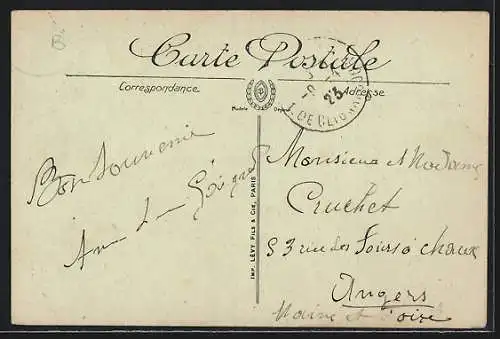 B
Carte Postale
Correspondance
Adresse
Modèle Dép.
R. DE CLIGNAN
23
Bon Souvenir
Monsieur et Madame
Cruchet
53 rue des Fours à chaux
Angers
Maine et Loire
IMP. LÉVY FILS & CIE, PARIS